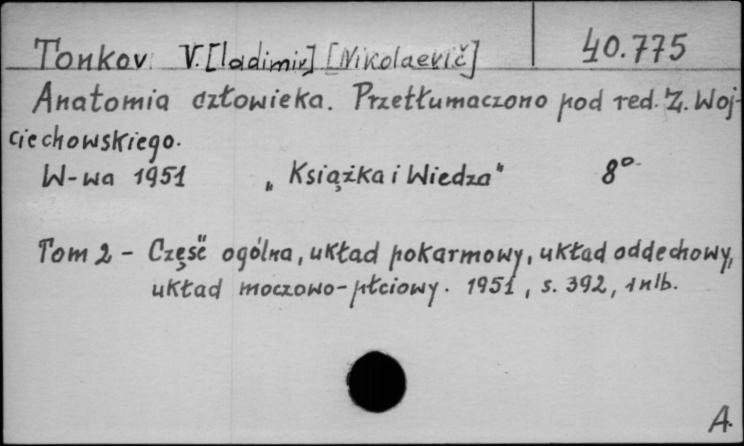 Tonkov V.[ladimir] [Nikolaevič] 40.775
Anatomia człowieka. Przetłumaczono pod red. Z. Woj-
ciechowskiego.
W-wa 1951 „Książka i Wiedza" 8°
Tom 2 - Część ogólna, układ pokarmowy, układ oddechowy,
układ moczowo-płciowy. 1951, s. 392, 1 nlb.
A.